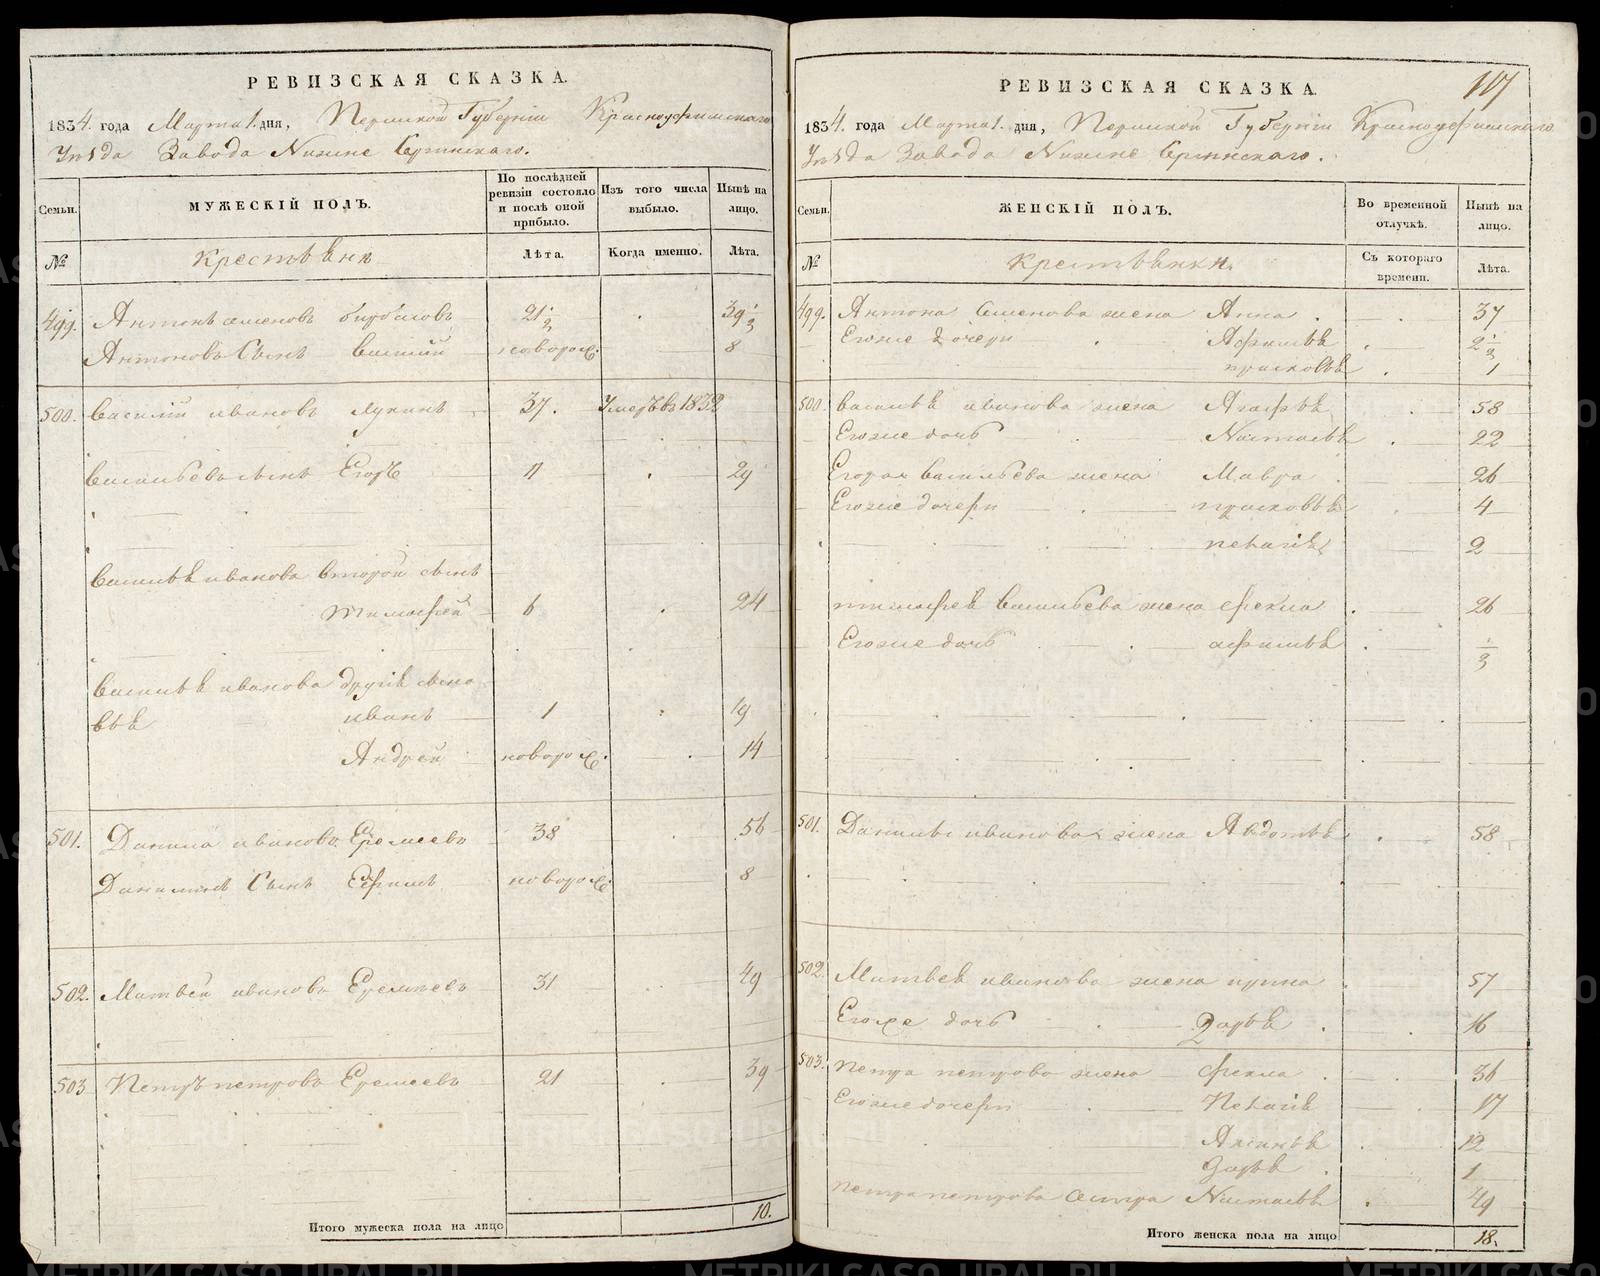 РЕВИЗСКАЯ СКАЗКА.
1834. года Марта 1. дня, Пермской Губерніи Красноуфимскаго
Уѣзда Завода Нижне Сергинскаго.
Семьи.
МУЖЕСКІЙ ПОЛЪ.
По послѣдней ревизіи состояло и послѣ оной прибыло.
Изъ того числа выбыло.
Нынѣ на лицо.
№
Крестьяне
Лѣта.
Когда именно.
Лѣта.
499. Антонъ семеновъ 21 1/2 39 1/2
Антоновъ Сынъ Василий новорож. 8
500. Василий ивановъ Лукинъ 37. Умеръ въ 1832
Васильевъ сынъ Егоръ 11 29
Василья иванова второй сынъ
Тимофей 6 24
Василья иванова другие сыно
вья иванъ 1 19
Андрей новорож. 14
501. Данила ивановъ Еремеевъ 38 56
Данилинъ Сынъ Ефимъ новорож. 8
502. Матвей ивановъ Еремеевъ 31 49
503 Петръ петровъ Еремеевъ 21 39
Итого мужеска пола на лицо 10.
107
РЕВИЗСКАЯ СКАЗКА.
1834. года Марта 1. дня, Пермской Губерніи Красноуфимскаго
Уѣзда Завода Нижне Сергинскаго.
Семьи.
ЖЕНСКІЙ ПОЛЪ.
Во временной отлучкѣ.
Нынѣ на лицо.
№
Крестьянки.
Съ котораго времени.
Лѣта.
499. Антона Семенова жена Анна 37
Егоже дочери Афимья 2 1/2
прасковья 1
500. Василья иванова жена Агафья 58
Егоже дочь Настасья 22
Егора Васильева жена Мавра 26
Егоже дочери прасковья 4
пелагия 2
тимофея Васильева жена фекла 26
Егоже дочь афимья 1/2
501. Данилы иванова жена Авдотья 58
502. Матвея иванова жена ирина 57
Егоже дочь Дарья 16
503. петра петрова жена фекла 36
Егоже дочери Пелагия 17
Аксинья 12
Дарья 1
петра петрова Сестра Настасья 49
Итого женска пола на лицо 18.